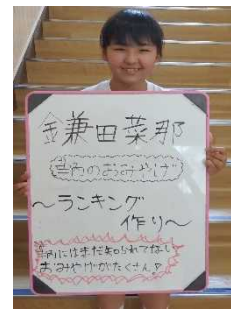 鎌田菜那
県内のおみやげ
～ランキング
作り～
県内にはまだ知られてない
おみやげがたくさん♡